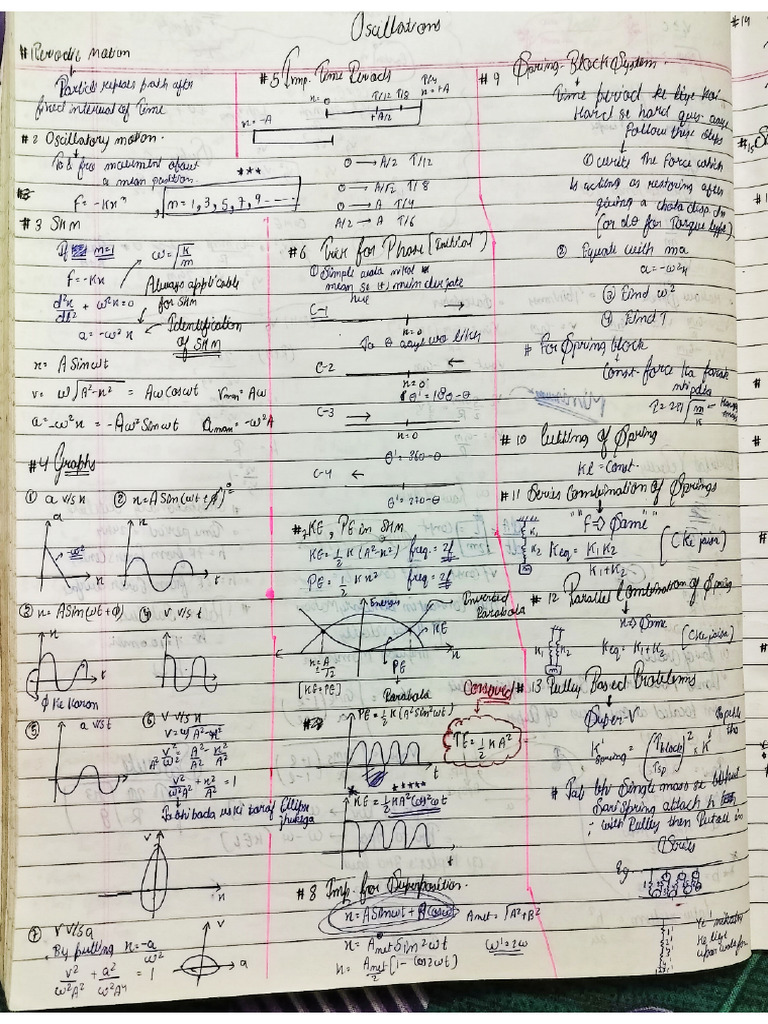 Oscillations
#1 Periodic Motion
Particle repeats path after
fixed interval of Time
#2 Oscillatory motion.
To & fro movement about
a mean position.
***
F = -Kxⁿ , n = 1, 3, 5, 7, 9 - - - -
#3 SHM
If n=1
ω = √(K/m)
F = -Kx
Always applicable
for SHM
d²x/dt² + ω²x = 0
a = -ω²x
Identification
of SHM
x = A Sin ωt
v = ω√(A²-x²) = Aω cos ωt   Vmax = Aω
a = -ω²x = -Aω² Sin ωt   amax = -ω²A
#4 Graphs
① a v/s x
② x = A Sin(ωt + ϕ)°
a
-ω²
x
x
t
③ x = A Sin(ωt + ϕ)
④ V v/s t
x
t
ϕ Ke Karan
⑤ a v/s t
⑥ V v/s x
v = ω√(A²-x²)
v²/A²ω² = A²/A² - x²/A²
v²/ω²A² + x²/A² = 1
Jo bhi bada uski taraf Ellipse
jhukega
v
x
⑦ V v/s a
By putting x = -a/ω²
v²/ω²A² + a²/ω⁴A² = 1
v
a
#5 Imp. Time Periods
x=0   T/12   T/8   T/4
x=+A
x=-A
+A/2
0 → A/2   T/12
0 → A/√2   T/8
0 → A   T/4
A/2 → A   T/6
#6 Trick for Phase (Initial)
① Simple wala nikal
mean se
C-1
x=0
C-2
x=0
θ' = 180-θ
C-3
x=0
θ' = 360-θ
C-4
θ' = 270-θ
#7 KE, PE in SHM
KE = 1/2 K(A²-x²)   freq. = 2f
PE = 1/2 Kx²   freq. = 2f
Energy
Inverted
Parabola
KE
x
x = A/√2
[KE=PE]
PE
Parabola
PE = 1/2 K(A² Sin² ωt)
t
Conserved
TE = 1/2 KA²
*****
KE = 1/2 KA² (cos)² ωt
t
#8 Imp. for Superposition.
x = A Sin ωt + B cos ωt   Anet = √(A²+B²)
x = Anet Sin² ωt
ω' = 2ω
x = Anet/2 [1 - cos 2ωt]
#9 Spring-Block System
Time period ke liye
Hard se hard ques aaye
follow these steps
① write the force which
is acting as restoring after
giving a chota disp. dx
(or dθ for Torque type)
② Equate with ma
a = -ω²x
③ Find ω²
④ Find T
# For Spring block
Const. force Ka farak
nhi padta
T = 2π√(m/K)
#10 Cutting of Spring
Kl = Const.
#11 Series Combination of Springs
"F ⇒ Same"
K₁
K₂
m
Keq = K₁K₂/(K₁+K₂)
(C Ke jaise)
#12 Parallel Combination of Spring
x ⇒ Same
K₁
K₂
m
Keq = K₁+K₂
#13 Pulley Based Problems
Super-V
K'spring = (Tblock/Tsp)² × K
# Jab bhi Single mass se
Sari Spring attach h
with Pulley then Put all in
Series
Eg.
Ye
Ke liye
#14